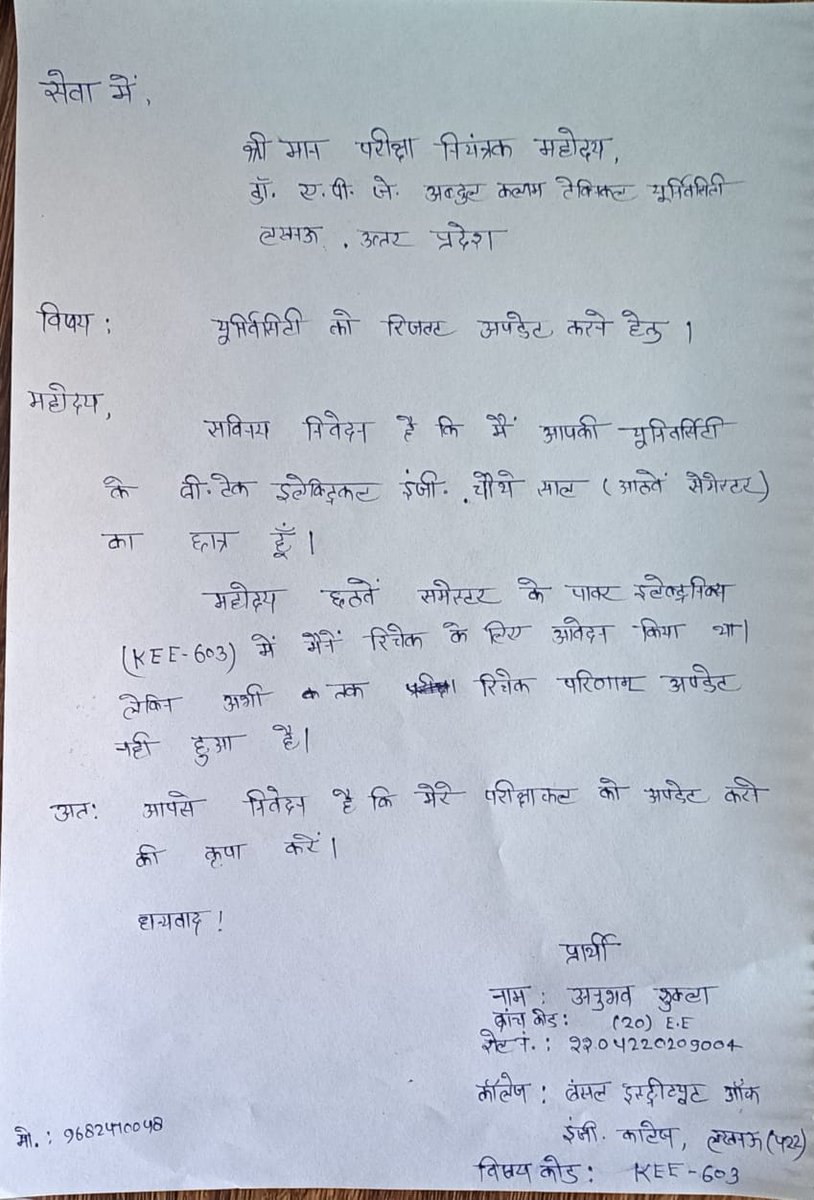 सेवा में,
श्री मान परीक्षा नियंत्रक महोदय,
डॉ. ए.पी. जे. अब्दुल कलाम टेक्निकल यूनिवर्सिटी
लखनऊ . उत्तर प्रदेश
विषय : यूनिवर्सिटी को रिजल्ट अपडेट करने हेतु ।
महोदय,
सविनय निवेदन है कि मैं आपकी यूनिवर्सिटी
के बी.टेक इलेक्ट्रिकल इंजी. चौथे साल (आठवें सेमेस्टर)
का छात्र हूँ ।
महोदय छठवें समेस्टर के पावर इलेक्ट्रनिक्स
(KEE-603) में मैनें रिचेक के लिए आवेदन किया था।
लेकिन अभी तक रिचेक परिणाम अपडेट
नही हुआ है।
अतः आपसे निवेदन है कि मेरे परीक्षाफल को अपडेट करने
की कृपा करें ।
धन्यवाद !
प्रार्थी
नाम : अनुभव शुक्ला
ब्रांच कोड : (20) E.E
रोल नं. : 2204220209004
कॉलेज : बंसल इंस्ट्रीट्यूट ऑफ
इंजी. कालेज, लखनऊ (422)
मो. : 9682410048
विषय कोड : KEE-603